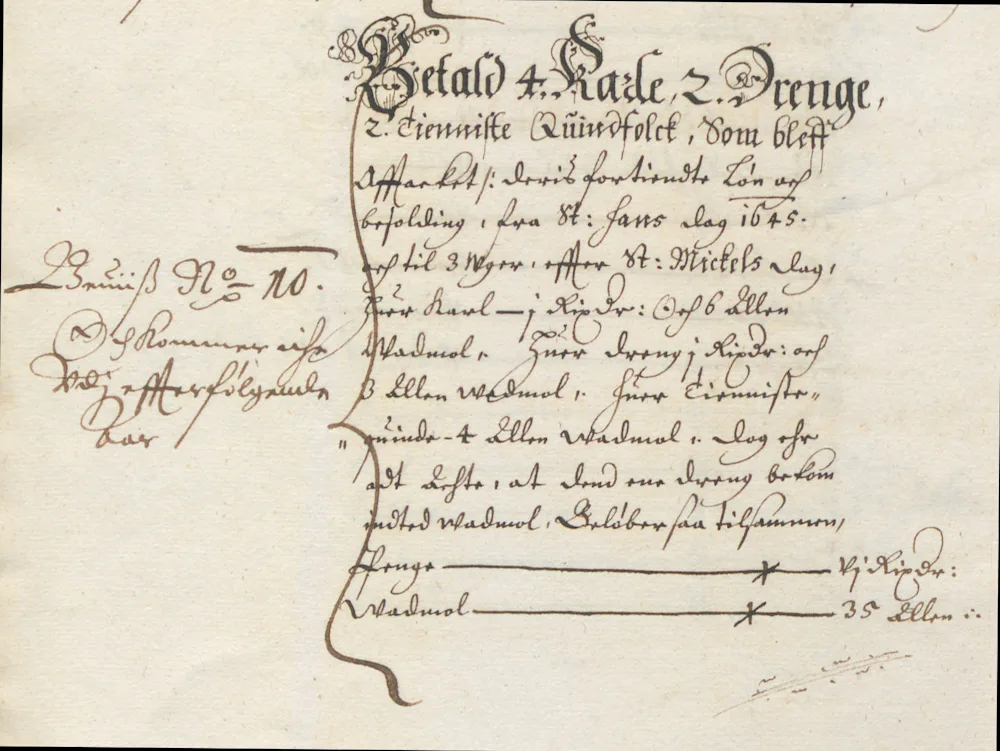 Betald 4. Karle, 2. Drenge,
2. Tienniste Quindfolck, Som bleff
Afftacket /: deris fortiendte Løn och
besolding, fra St: Hans dag 1645.
och til 3 Wger, effter St: Mickels dag,
Huer Karl — j Rixdr: Och 6 Allen
Wadmol, Huer dreng j Rixdr: och
3 Allen wadmol, Huer Tienniste-
quinde - 4 Allen wadmol, dog ehr
adt Achte, at dend ene dreng bekom
indted wadmol, Beløber saa tilsammen,
Penge — vj Rixdr:
Wadmol — 35 Allen
Beuiiß No 10.
Och kommer iche
Vdj effterfølgende
Aar